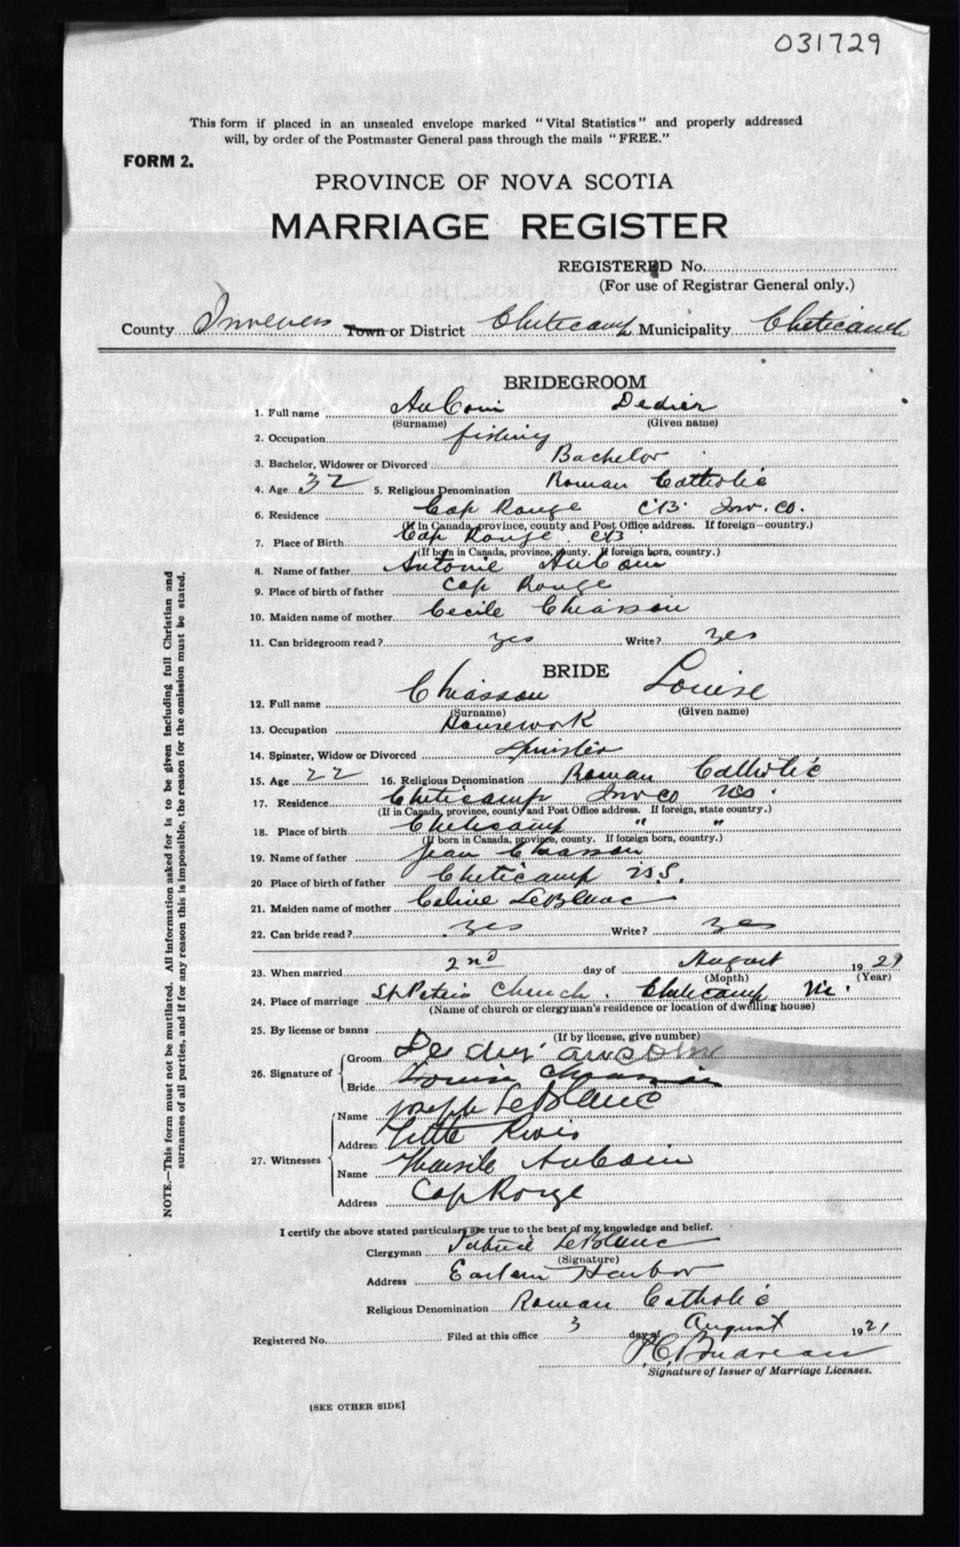 031729
This form if placed in an unsealed envelope marked "Vital Statistics" and properly addressed
will, by order of the Postmaster General pass through the mails "FREE."
FORM 2.
PROVINCE OF NOVA SCOTIA
MARRIAGE REGISTER
REGISTERED No.
(For use of Registrar General only.)
County Inverness Town or District Cheticamp Municipality Cheticamp
BRIDEGROOM
1. Full name AuCoin Dedier
(Surname) (Given name)
2. Occupation fishing
3. Bachelor, Widower or Divorced Bachelor
4. Age 32 5. Religious Denomination Roman Catholic
6. Residence Cap Rouge C.B. Inv. Co.
(If in Canada, province, county and Post Office address. If foreign—country.)
7. Place of Birth Cap Rouge CB
(If born in Canada, province, county. If foreign born, country.)
8. Name of father Antonie AuCoin
9. Place of birth of father Cap Rouge
10. Maiden name of mother Cecile Chiasson
11. Can bridegroom read? yes Write? yes
BRIDE
12. Full name Chiasson Louise
(Surname) (Given name)
13. Occupation Housework
14. Spinster, Widow or Divorced Spinster
15. Age 22 16. Religious Denomination Roman Catholic
17. Residence Cheticamp Inv Co NS.
(If in Canada, province, county and Post Office address. If foreign, state country.)
18. Place of birth Cheticamp " "
(If born in Canada, province, county. If foreign born, country.)
19. Name of father Jean Chiasson
20 Place of birth of father Cheticamp N.S.
21. Maiden name of mother Celine LeBlanc
22. Can bride read? yes Write? yes
23. When married 2nd day of August 1929
(Month) (Year)
24. Place of marriage St Peters Church. Cheticamp
(Name of church or clergyman's residence or location of dwelling house)
25. By license or banns
(If by license, give number)
26. Signature of
Groom
Bride Louise Chiasson
27. Witnesses
Name Joseph LeBlanc
Address Little River
Name AuCoin
Address Cap Rouge
I certify the above stated particulars are true to the best of my knowledge and belief.
Clergyman Patrice LeBlanc
(Signature)
Address Eastern Harbor
Religious Denomination Roman Catholic
Registered No. Filed at this office 3 day of August 1921
P.C. Boudreau
Signature of Issuer of Marriage Licenses.
[SEE OTHER SIDE]
NOTE.—This form must not be mutilated. All information asked for is to be given including full Christian and
surnames of all parties, and if for any reason this is impossible, the reason for the omission must be stated.